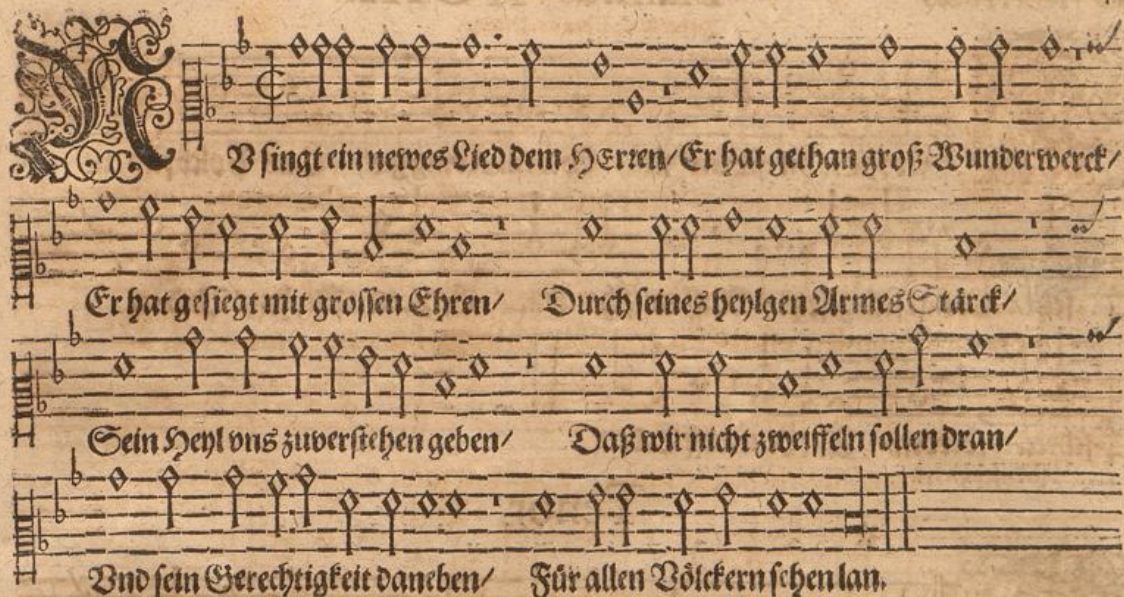 NV singt ein newes Lied dem HErren/ Er hat gethan groß Wunderwerck/
Er hat gesiegt mit grossen Ehren/ Durch seines heylgen Armes Stärck/
Sein Heyl vns zuverstehen geben/ Daß wir nicht zweiffeln sollen dran/
Vnd sein Gerechtigkeit daneben/ Für allen Völckern sehen lan.